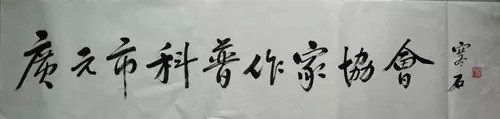 廣元市科普作家協會
寒石